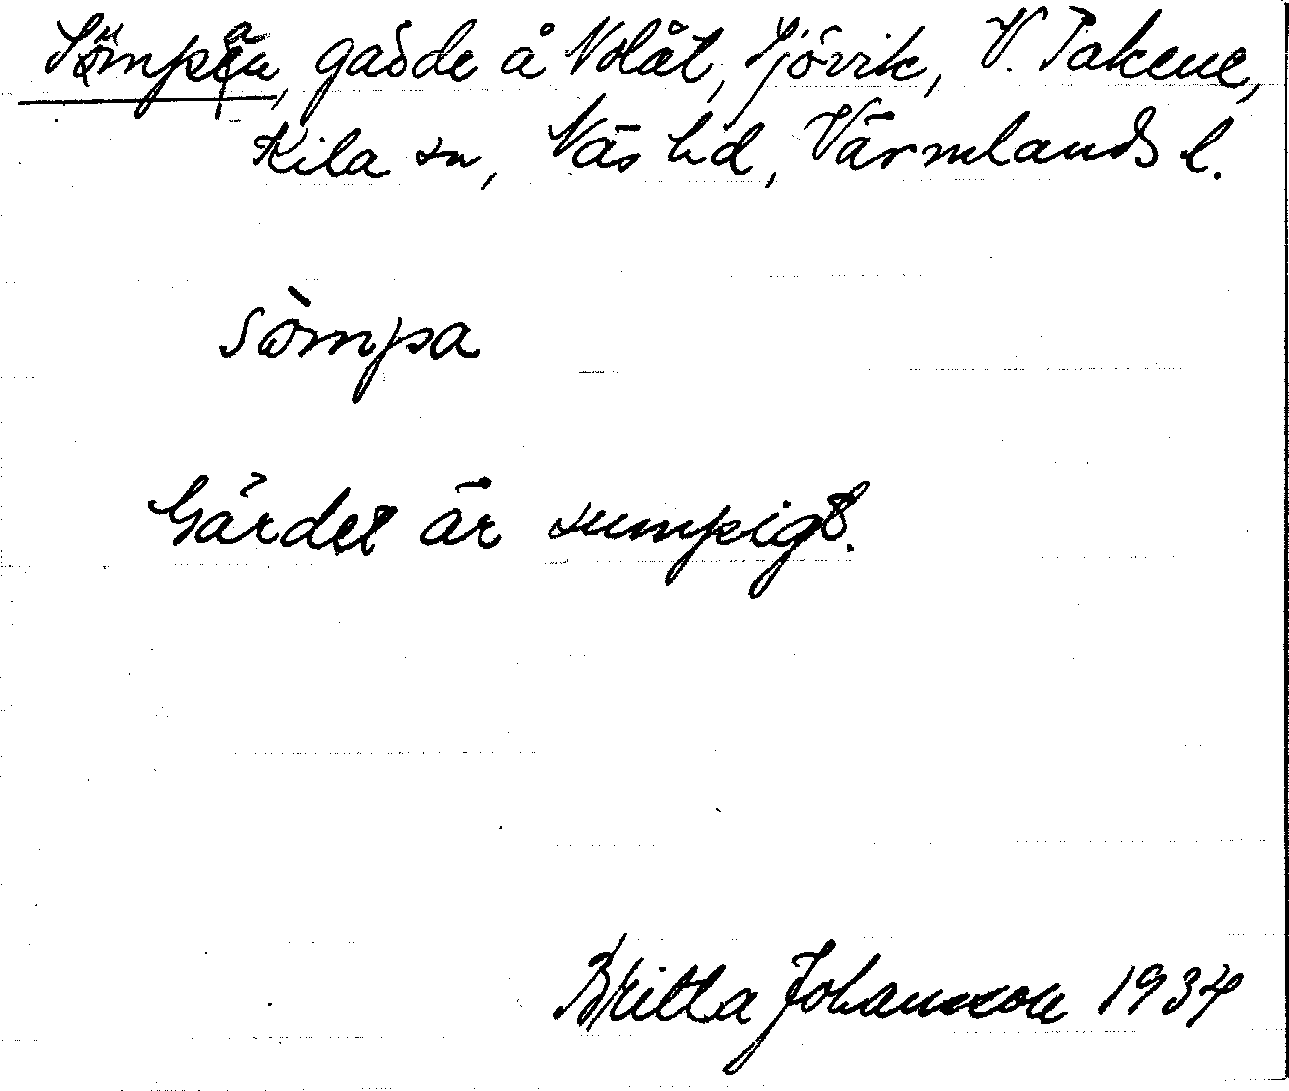 Sumpan, gärde å Nolåt, Sjövik, V. Takene,
Kila sn, Näs hd, Värmlands l.
sòmpa
Gärdet är sumpigt.
Britta Johansson 1934